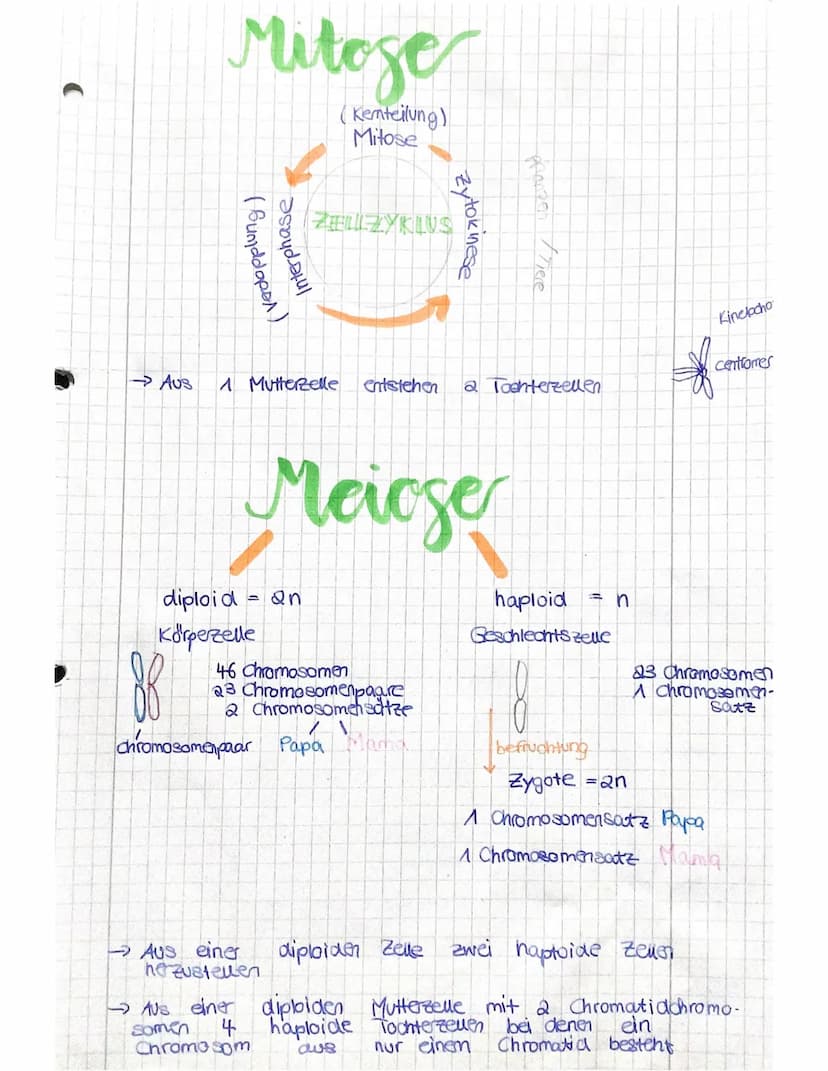 Mitose
(Kernteilung)
Mitose
Zytokinese
Pflanzen / Tiere
ZELLZYKLUS
Interphase
(Verdopplung)
Kinetocho
centromer
→ Aus 1 Mutterzelle entstehen 2 Tochterzellen
Meiose
diploid = 2n
haploid = n
Körperzelle
Geschlechtszelle
46 Chromosomen
23 Chromosomenpaare
2 Chromosomensätze
23 Chromosomen
1 Chromosomen-
satz
chromosomenpaar Papa Mama
befruchtung
Zygote = 2n
1 Chromosomensatz Papa
1 Chromosomensatz Mama
→ Aus einer diploiden Zelle zwei haploide Zellen
→ Aus einer diploiden Mutterzelle mit 2 Chromatidchromo-
somen 4 haploide Tochterzellen bei denen ein
Chromosom aus nur einem Chromatid besteht